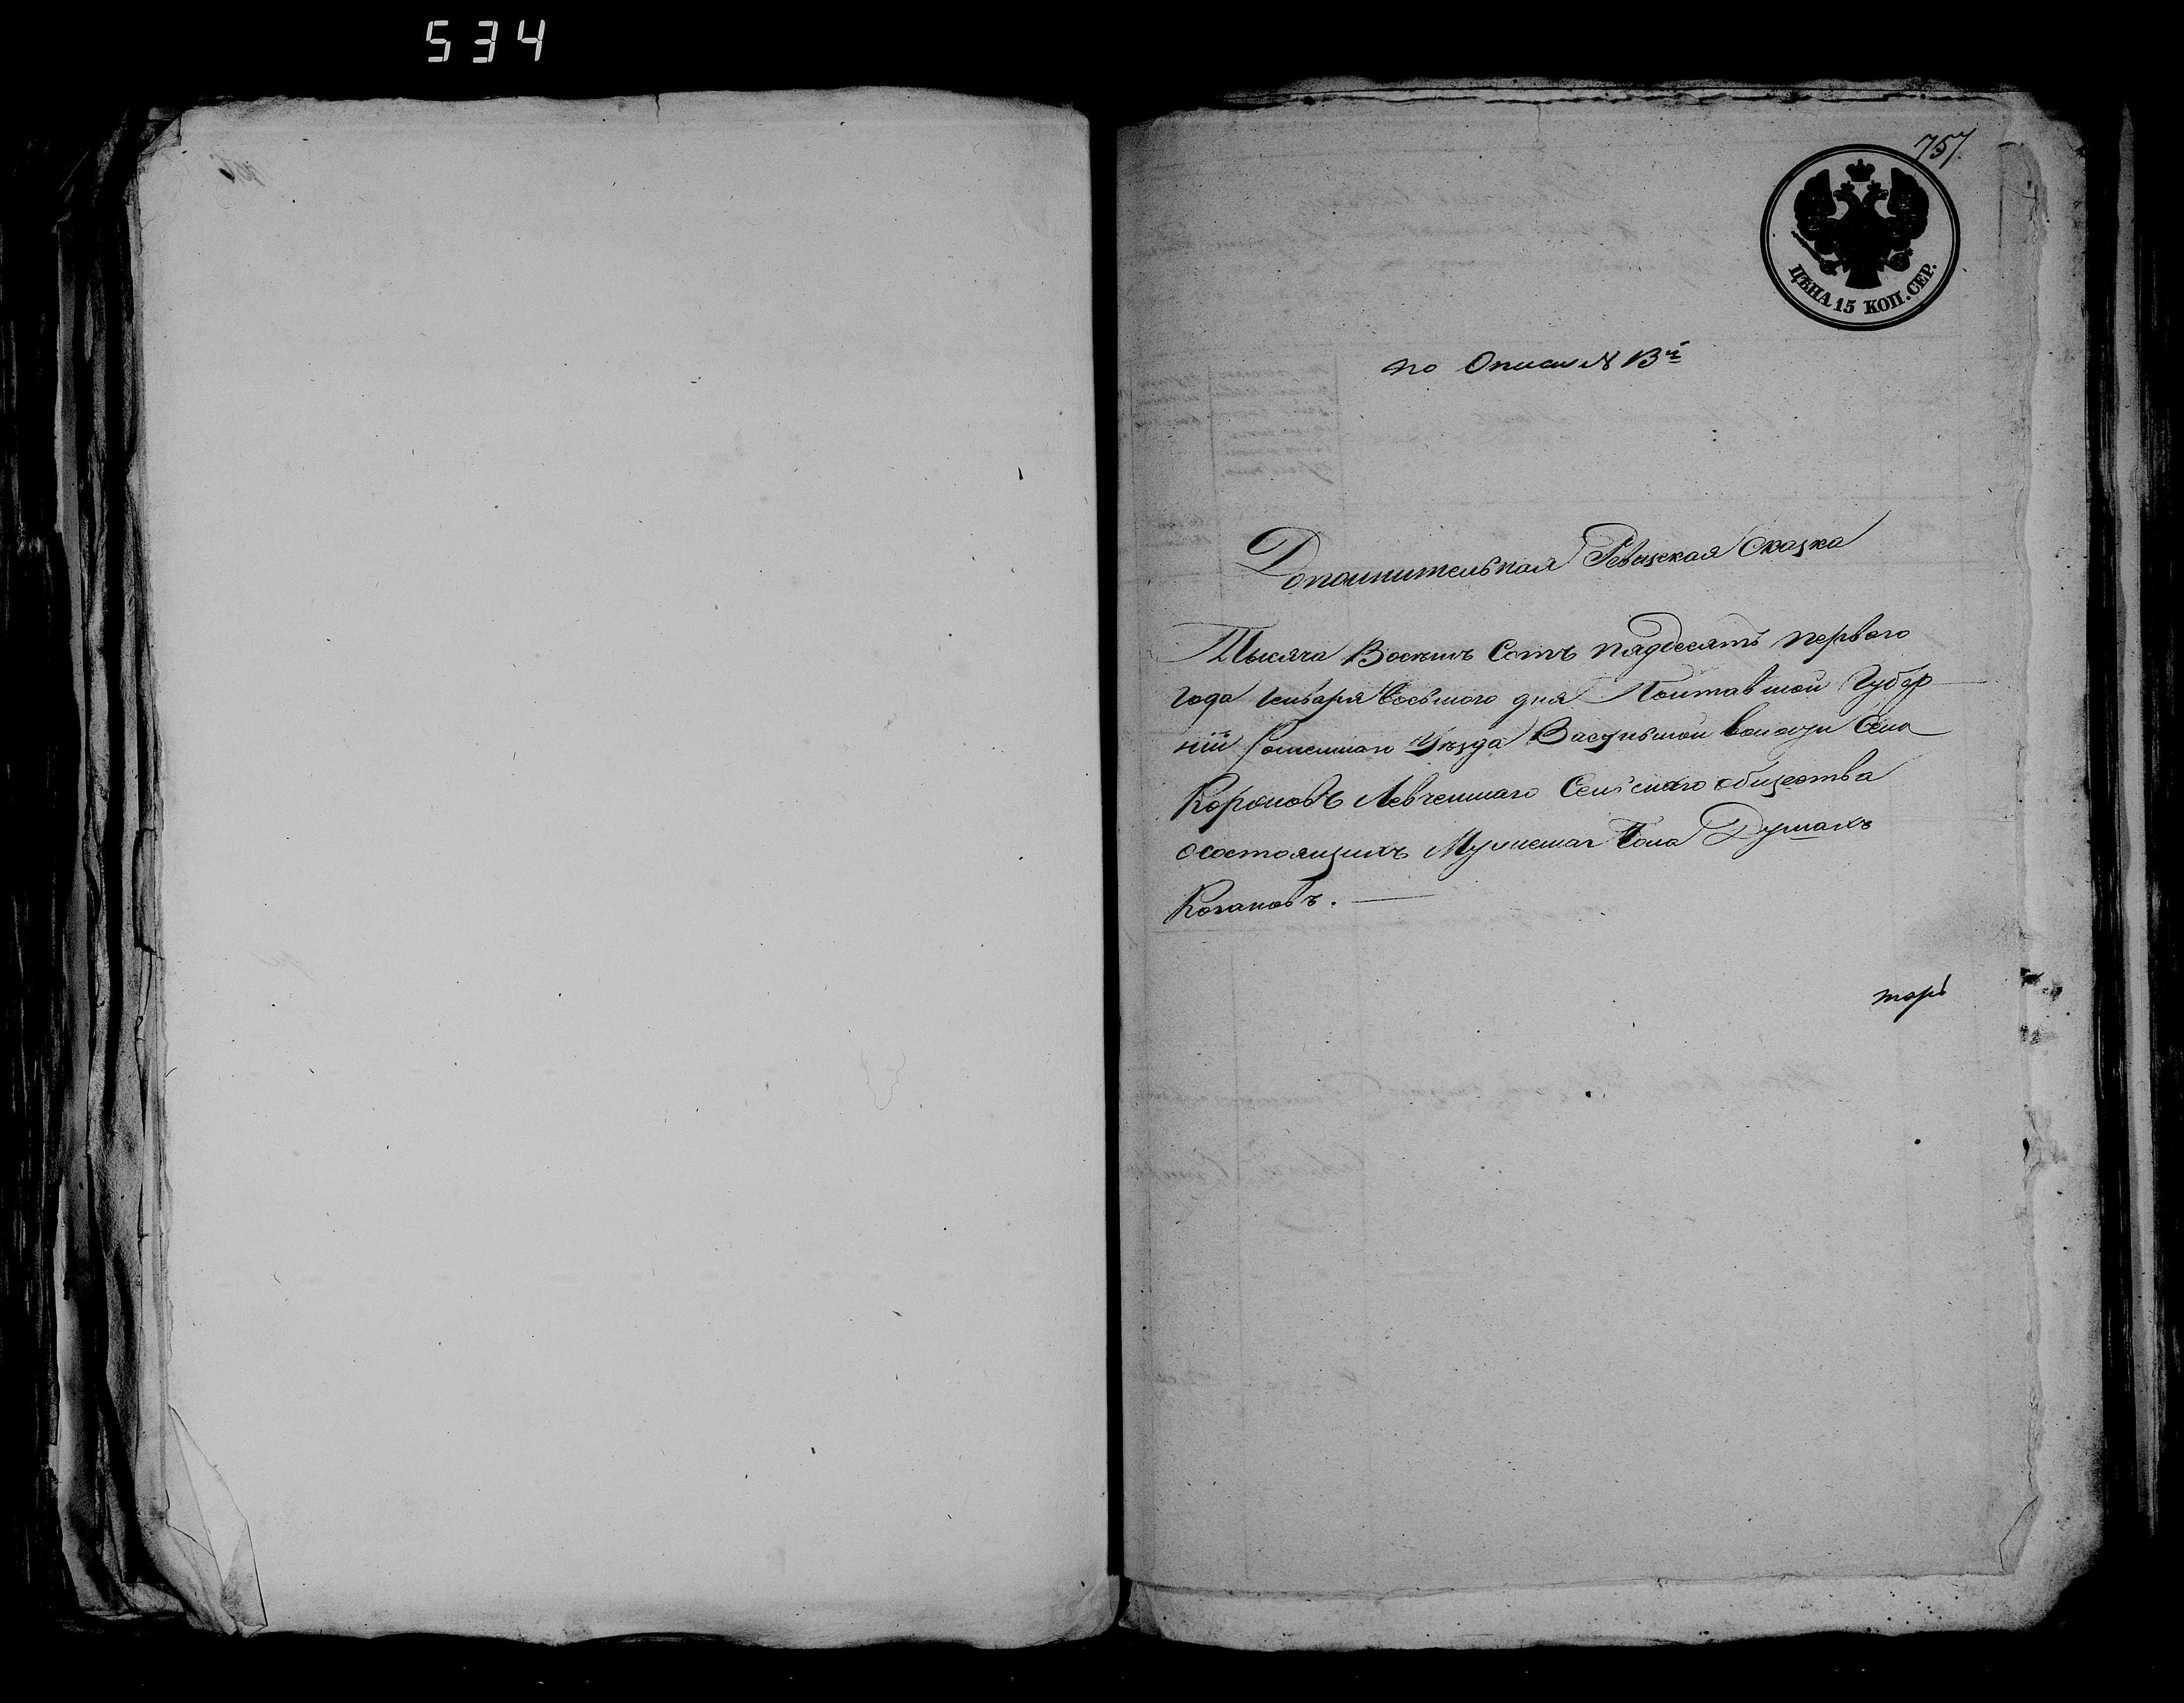 534
757
ЦѢНА 15 КОП. СЕР.
по Описи N 13й
Дополнительная Ревизская Сказка
Тысяча Восемь Сотъ пядесятъ перваго
года Генваря восьмого дня Полтавской Губер
нїи Роменскаго Уезда Васульской волости Села
Коровает Левченскаго Сельскаго общества
осостоящихъ Мужескаг Пола Душахъ
Козаковъ.